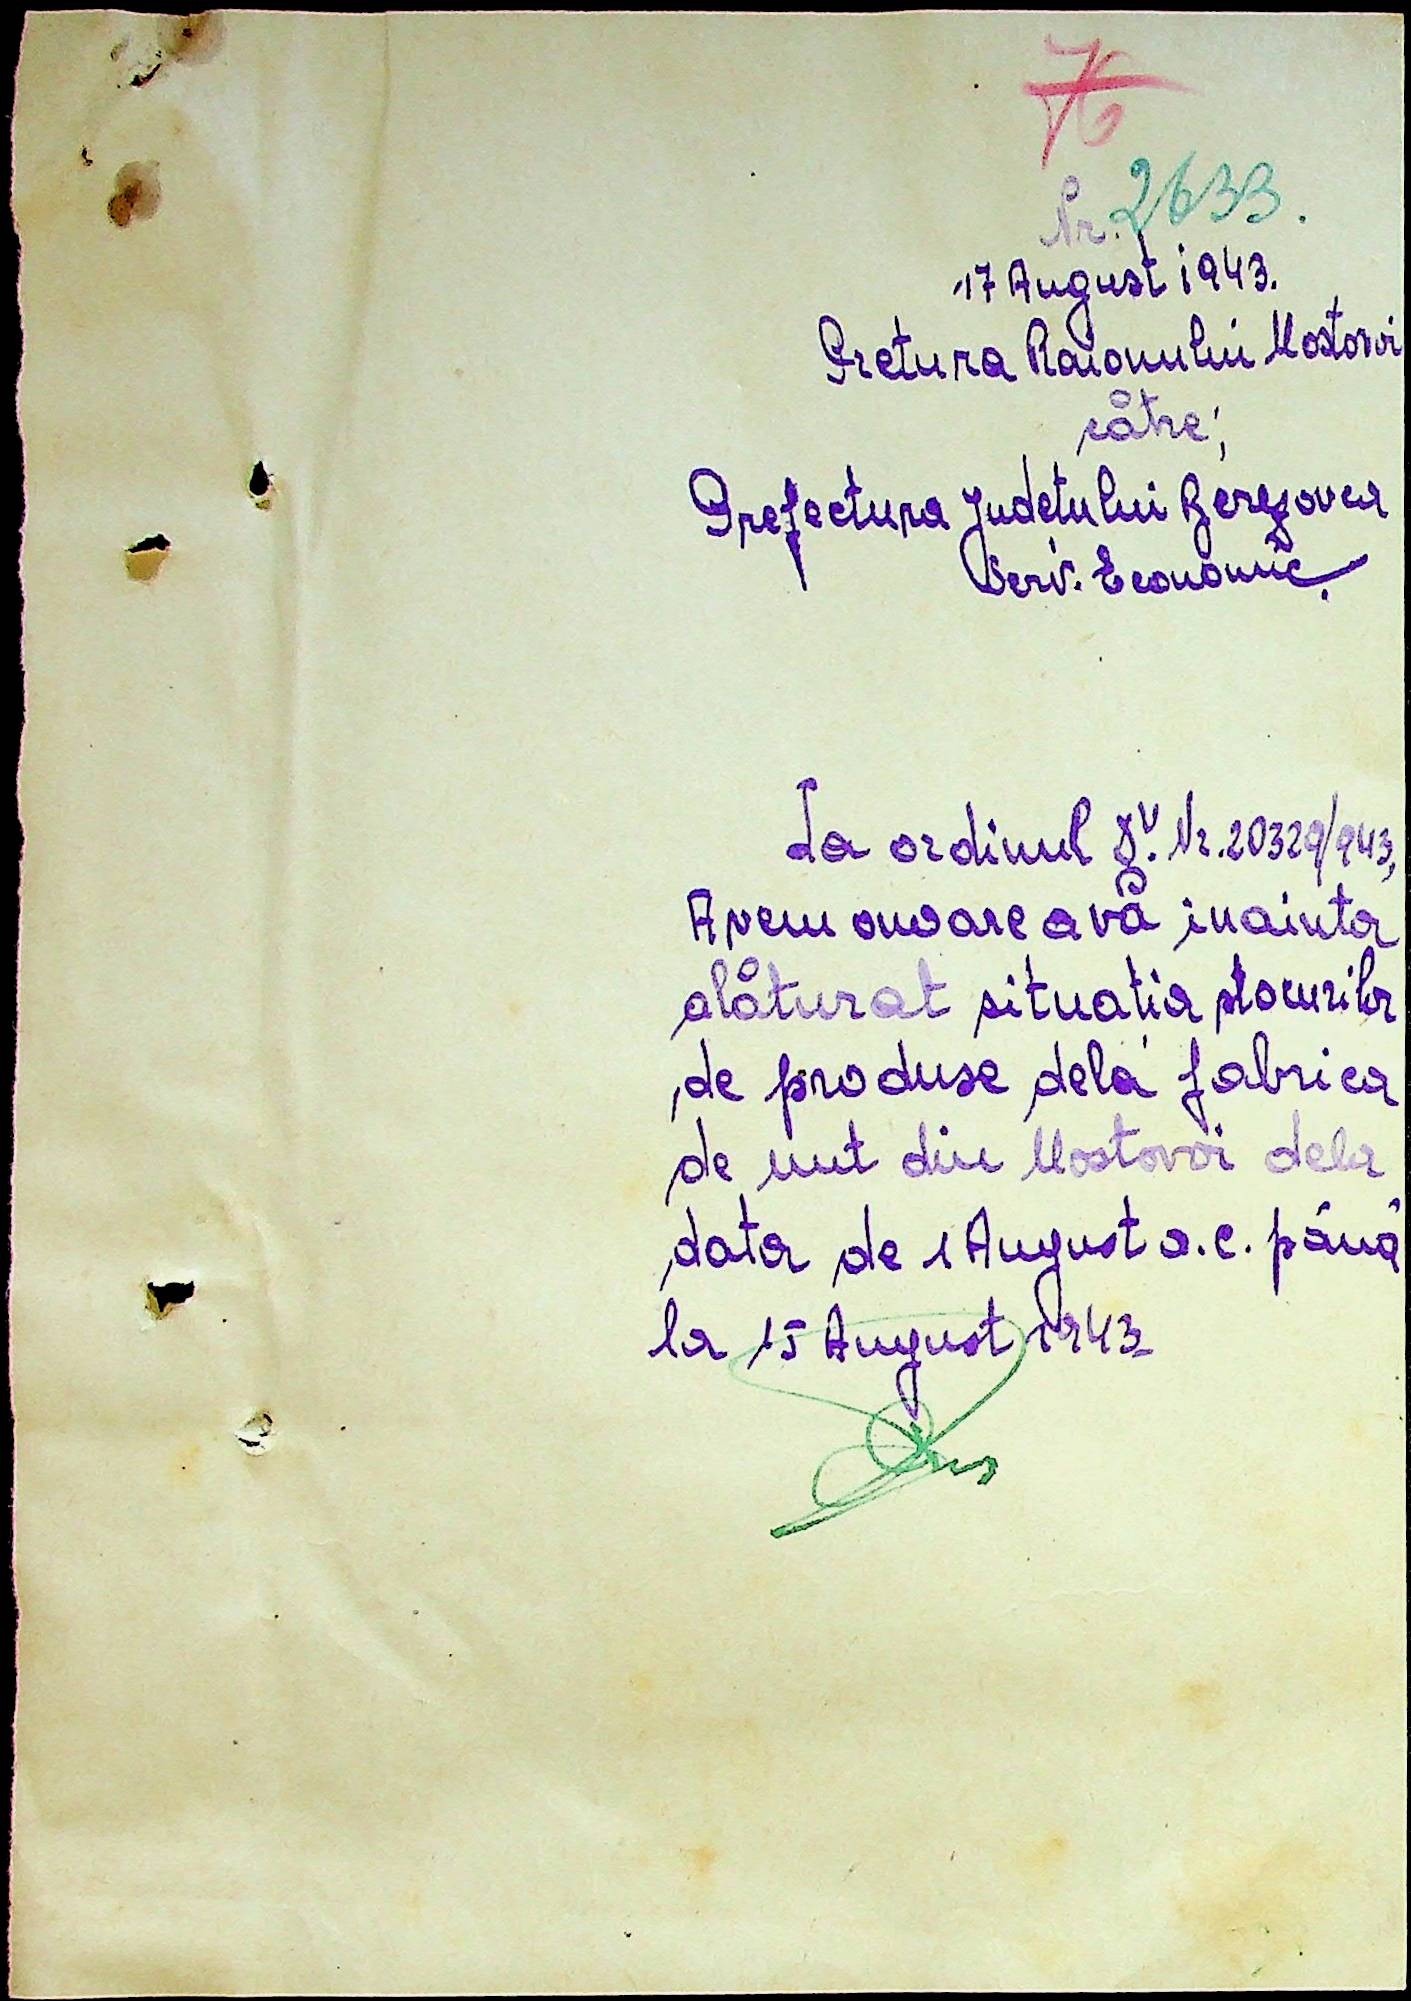 76
Nr. 2633.
17 August 1943.
Pretura Raionului Mostovoi
către,
Prefectura Judetului Berezovca
Serv. Economic.
La ordinul Dv. Nr. 20329/943,
Avem onoare a vă inainta
alăturat situatia stocurilor
de produse dela fabrica
de unt din Mostovoi dela
data de 1 August a.c. până
la 15 August 1943